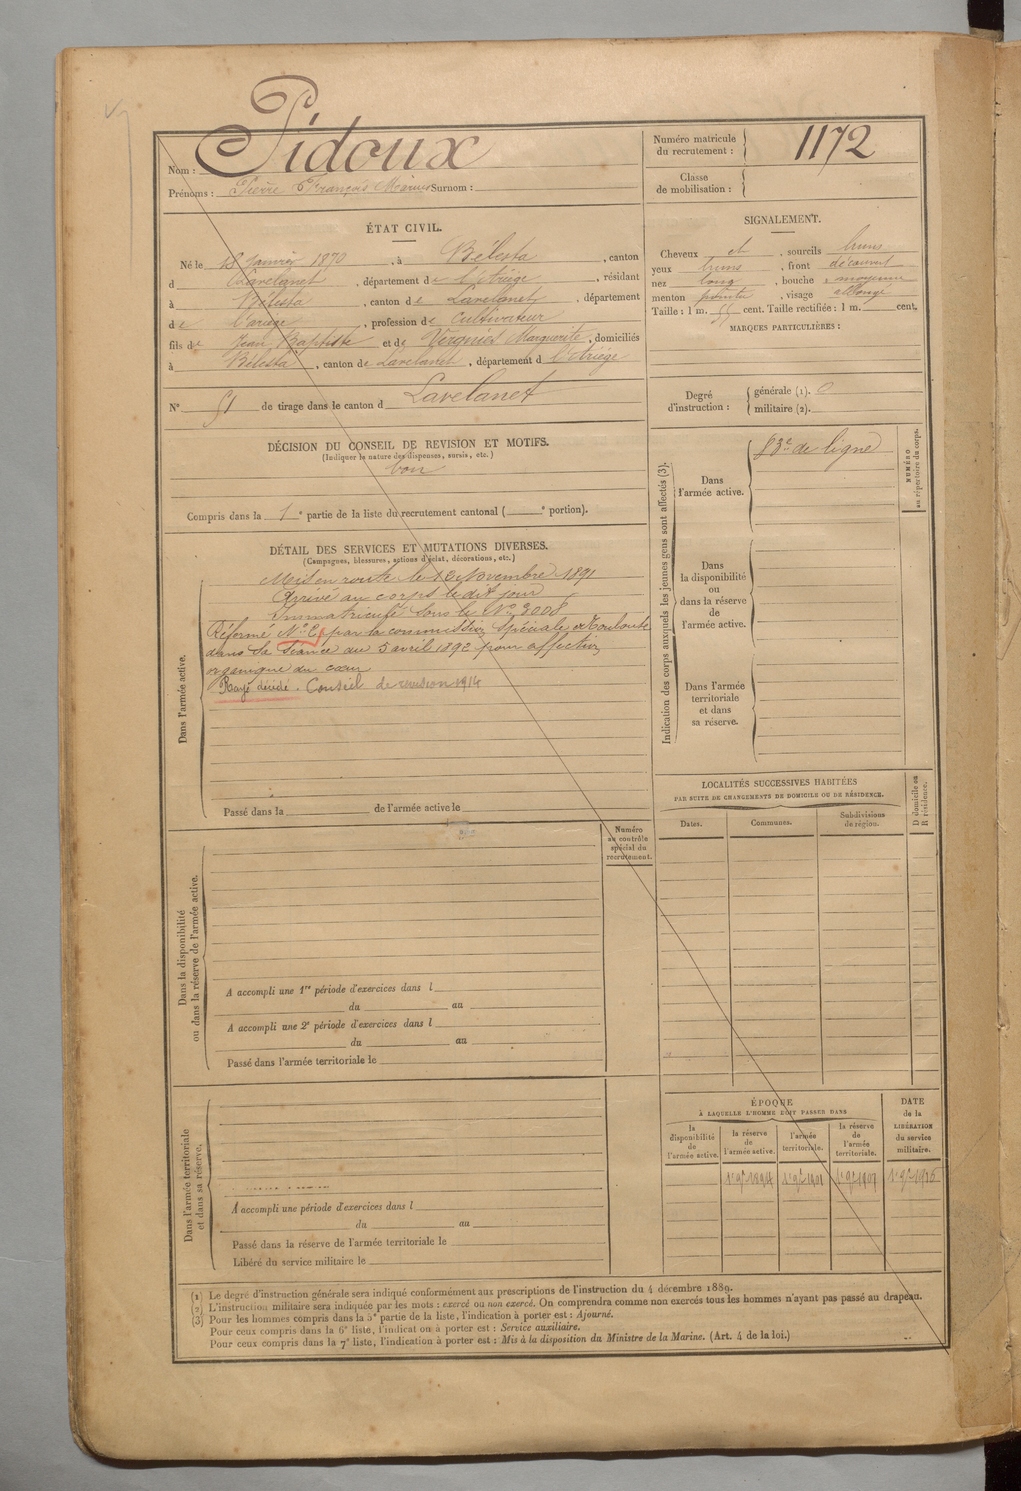 Pidoux
Nom :
Prénoms : Pierre François Marius Surnom :
Numéro matricule du recrutement : 1172
Classe de mobilisation :
ÉTAT CIVIL.
Né le 18 janvier 1870, à Bélesta, canton
d Lavelanet, département de l'Ariège, résidant
à Bélesta, canton de Lavelanet, département
de l'ariège, profession de Cultivateur
fils de Jean Baptiste et de Vergnies Marguerite, domiciliés
à Bélesta, canton de Lavelanet, département d l'Ariège
N° 51 de tirage dans le canton d Lavelanet
SIGNALEMENT.
Cheveux et, sourcils bruns
yeux bruns, front découvert
nez long, bouche moyenne
menton pointu, visage allongé
Taille : 1 m. 55 cent. Taille rectifiée : 1 m. cent.
MARQUES PARTICULIÈRES :
Degré d'instruction : générale (1). 0
militaire (2).
DÉCISION DU CONSEIL DE REVISION ET MOTIFS.
(Indiquer la nature des dispenses, sursis, etc.)
bon
Compris dans la 1e partie de la liste du recrutement cantonal ( e portion).
DÉTAIL DES SERVICES ET MUTATIONS DIVERSES.
(Campagnes, blessures, actions d'éclat, décorations, etc.)
Mis en route le 10 Novembre 1891
Arrivé au corps le dit jour
Immatriculé sous le N° 3008
Réformé N° 2, par la commission spéciale de Toulouse
dans sa séance du 5 avril 1892 pour affection
organique du cœur
Rayé décidé. Conseil de revision 1914
Dans l'armée active.
Passé dans la de l'armée active le
Indication des corps auxquels les jeunes gens sont affectés (3).
Dans l'armée active.
83e de ligne
Dans la disponibilité ou dans la réserve de l'armée active.
Dans l'armée territoriale et dans sa réserve.
NUMÉRO au répertoire du corps.
LOCALITÉS SUCCESSIVES HABITÉES
PAR SUITE DE CHANGEMENTS DE DOMICILE OU DE RÉSIDENCE.
Dates.
Communes.
Subdivisions de région.
D domicile ou R résidence.
Numéro au contrôle spécial du recrutement.
Dans la disponibilité ou dans la réserve de l'armée active.
A accompli une 1re période d'exercices dans l
du au
A accompli une 2e période d'exercices dans l
du au
Passé dans l'armée territoriale le
Dans l'armée territoriale et dans sa réserve.
A accompli une période d'exercices dans l
du au
Passé dans la réserve de l'armée territoriale le
Libéré du service militaire le
ÉPOQUE
À LAQUELLE L'HOMME DOIT PASSER DANS
la disponibilité de l'armée active.
la réserve de l'armée active.
l'armée territoriale.
la réserve de l'armée territoriale.
DATE de la LIBÉRATION du service militaire.
1er 9bre 1894 1er 9bre 1901 1er 9bre 1907 1er 9bre 1916
(1) Le degré d'instruction générale sera indiqué conformément aux prescriptions de l'instruction du 4 décembre 1889.
(2) L'instruction militaire sera indiquée par les mots : exercé ou non exercé. On comprendra comme non exercés tous les hommes n'ayant pas passé au drapeau.
(3) Pour les hommes compris dans la 5e partie de la liste, l'indication à porter est : Ajourné.
Pour ceux compris dans la 6e liste, l'indication à porter est : Service auxiliaire.
Pour ceux compris dans la 7e liste, l'indication à porter est : Mis à la disposition du Ministre de la Marine. (Art. 4 de la loi.)